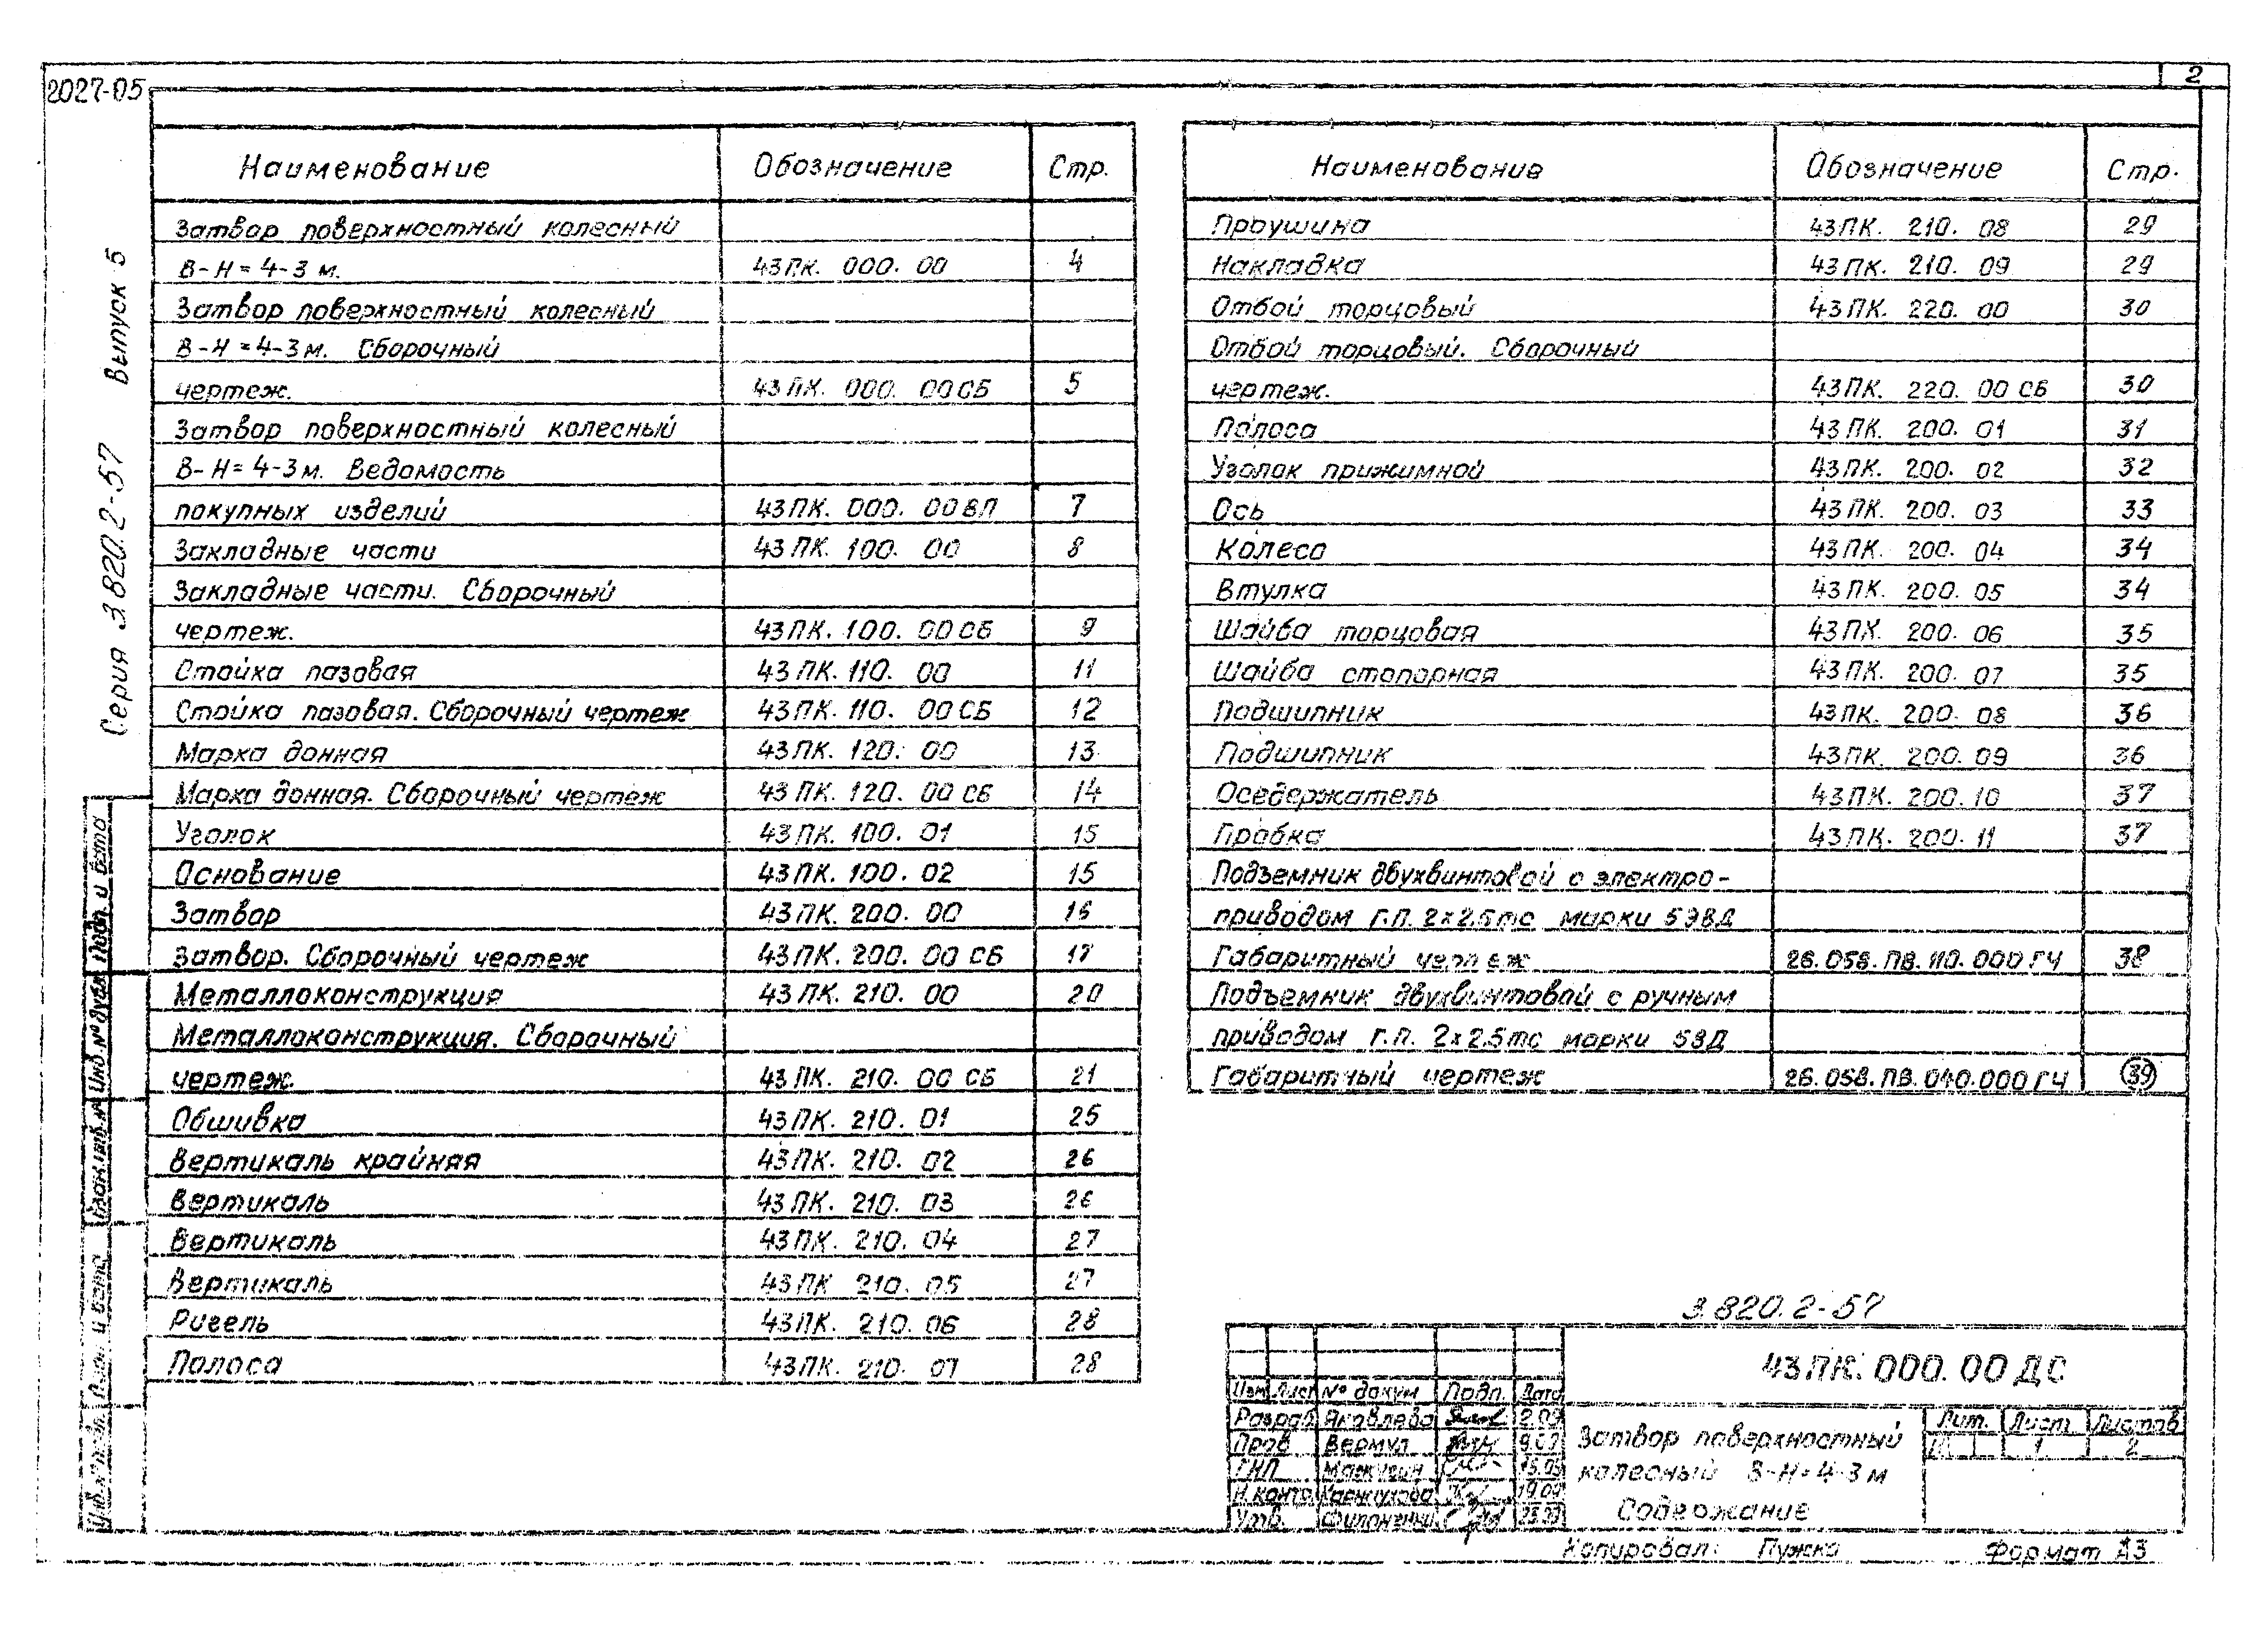 2
2027-05
Серия 3.820.2-57 Выпуск 5
Наименование Обозначение Стр.
Затвор поверхностный колесный
В-Н=4-3 м. 43ПК. 000. 00 4
Затвор поверхностный колесный
В-Н=4-3м. Сборочный
чертеж. 43ПК. 000. 00СБ 5
Затвор поверхностный колесный
В-Н=4-3м. Ведомость
покупных изделий 43ПК. 000. 00ВП 7
Закладные части 43ПК. 100. 00 8
Закладные части. Сборочный
чертеж. 43ПК. 100. 00СБ 9
Стойка пазовая 43ПК. 110. 00 11
Стойка пазовая. Сборочный чертеж 43ПК. 110. 00СБ 12
Марка донная 43ПК. 120. 00 13
Марка донная. Сборочный чертеж 43ПК. 120. 00СБ 14
Уголок 43ПК. 100. 01 15
Основание 43ПК. 100. 02 15
Затвор 43ПК. 200. 00 16
Затвор. Сборочный чертеж 43ПК. 200. 00СБ 17
Металлоконструкция 43ПК. 210. 00 20
Металлоконструкция. Сборочный
чертеж. 43ПК. 210. 00СБ 21
Обшивка 43ПК. 210. 01 25
Вертикаль крайняя 43ПК. 210. 02 26
Вертикаль 43ПК. 210. 03 26
Вертикаль 43ПК. 210. 04 27
Вертикаль 43ПК 210. 05 27
Ригель 43ПК. 210. 06 28
Полоса 43ПК. 210. 07 28
Наименование Обозначение Стр.
Проушина 43ПК. 210. 08 29
Накладка 43ПК. 210. 09 29
Отбой торцовый 43ПК. 220. 00 30
Отбой торцовый. Сборочный
чертеж. 43ПК. 220. 00СБ 30
Полоса 43ПК. 200. 01 31
Уголок прижимной 43ПК. 200. 02 32
Ось 43ПК. 200. 03 33
Колесо 43ПК. 200. 04 34
Втулка 43ПК. 200. 05 34
Шайба торцовая 43ПК. 200. 06 35
Шайба стопорная 43ПК. 200. 07 35
Подшипник 43ПК. 200. 08 36
Подшипник 43ПК. 200. 09 36
Оседержатель 43ПК. 200. 10 37
Пробка 43ПК. 200. 11 37
Подъемник двухвинтовой с электро-
приводом г.п. 2×2,5тс марки 5ЭВД
Габаритный чертеж 26.058.ПВ.110.000ГЧ 38
Подъемник двухвинтовой с ручным
приводом г.п. 2×2,5тс марки 5ВД
Габаритный чертеж 26.058.ПВ.040.000ГЧ 39
3.820.2-57
43ПК. 000. 00ДС
Изм Лист № докум Подп. Дата
Разраб Яковлева
Пров Вермул
ГИП
Н.контр
Утв.
Затвор поверхностный
колесный В-Н=4-3м
Содержание
Лит. Лист Листов
1 2
Копировал: Пужко Формат А3
Подп. и дата
Инв.№ дубл.
Взам.инв.№
Подп. и дата
Инв.№ подл.